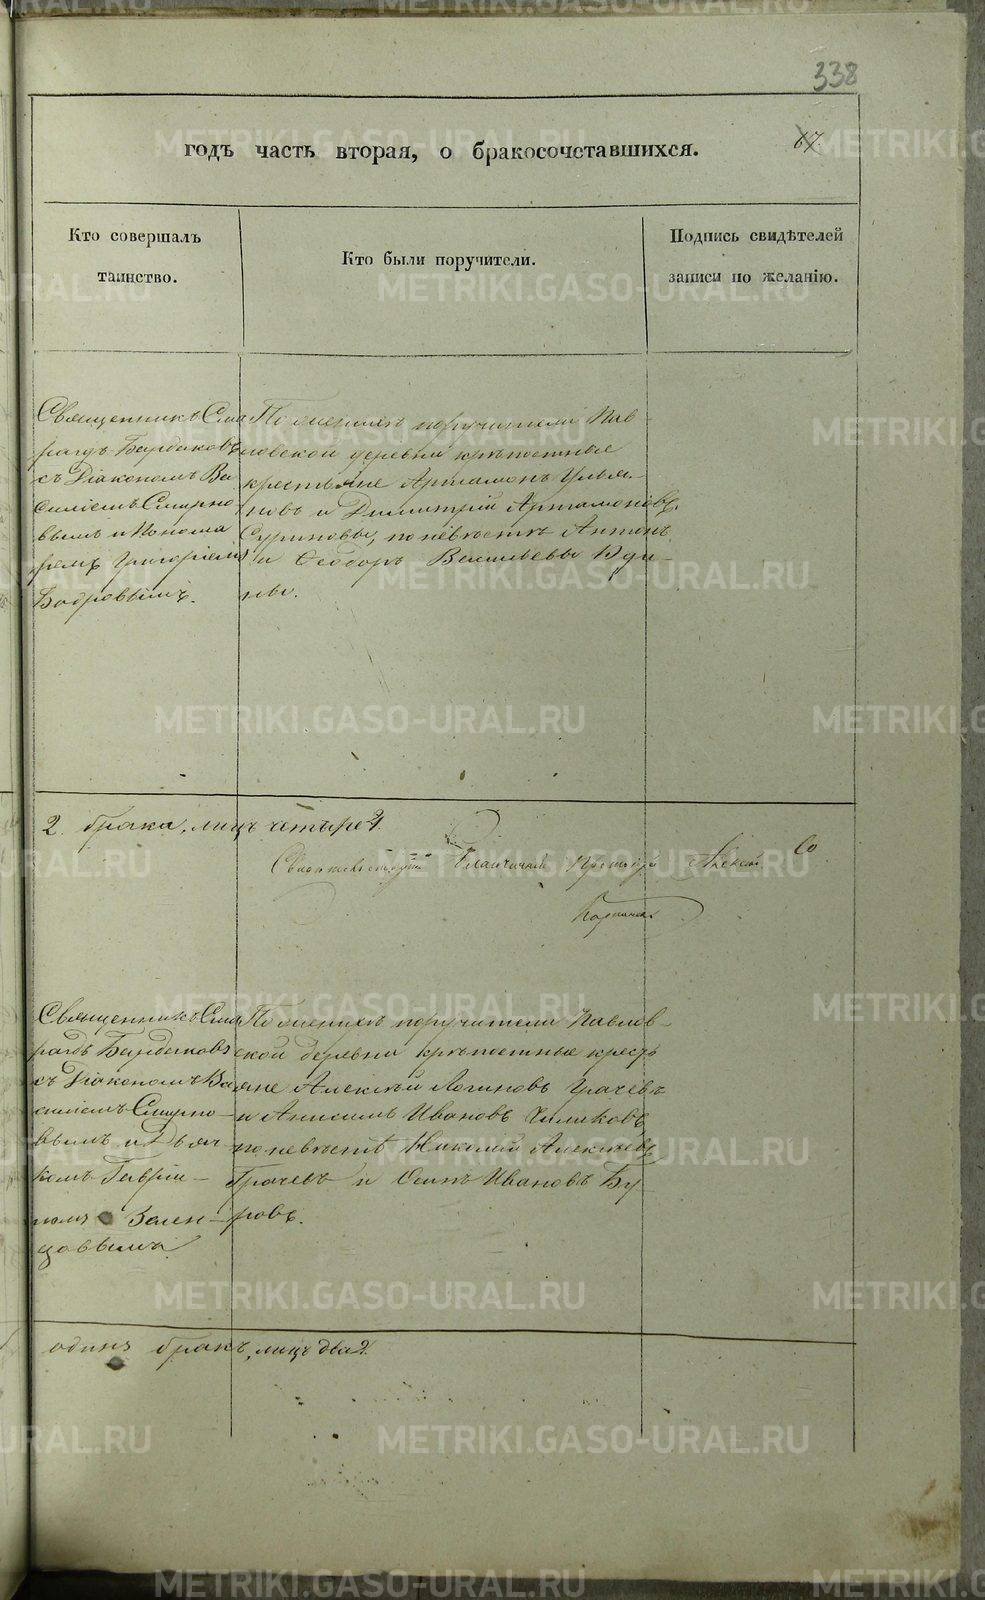 338
годъ часть вторая, о бракосочетавшихся.
67.
Кто совершалъ
таинство.
Кто были поручители.
Подпись свидѣтелей
записи по желанію.
Священникъ Сма
рагдъ Бардаковъ
съ Діакономъ Ва
силіемъ Смирно
вымъ и Понома
ремъ Григоріемъ
Бобровымъ.
По женихѣ поручители Пав
ловской деревни крѣпостные
крестьяне Артамонъ Улья
новъ и Димитрій Артамоновъ
по невѣстѣ Антонъ
и Ѳеодоръ Васильевы
ны.
2. брака, лицъ четыре 4.
Свидѣтельствовалъ Благочинный Алексей
Священникъ Сма
рагдъ Бардаковъ
съ Діакономъ Ва
силіемъ Смирно-
вымъ и Дьяч
комъ Гаврии-
ломъ Зелен-
цовымъ
По женихѣ поручители Павлов-
ской деревни крѣпостные кресть
яне Алексѣй Логиновъ Грачевъ
и Анисимъ Ивановъ
по невѣстѣ Николай Алексѣевъ
Грачевъ и Осипъ Ивановъ Бу
ровъ.
одинъ бракъ, лицъ два 2.
METRIKI.GASO-URAL.RU